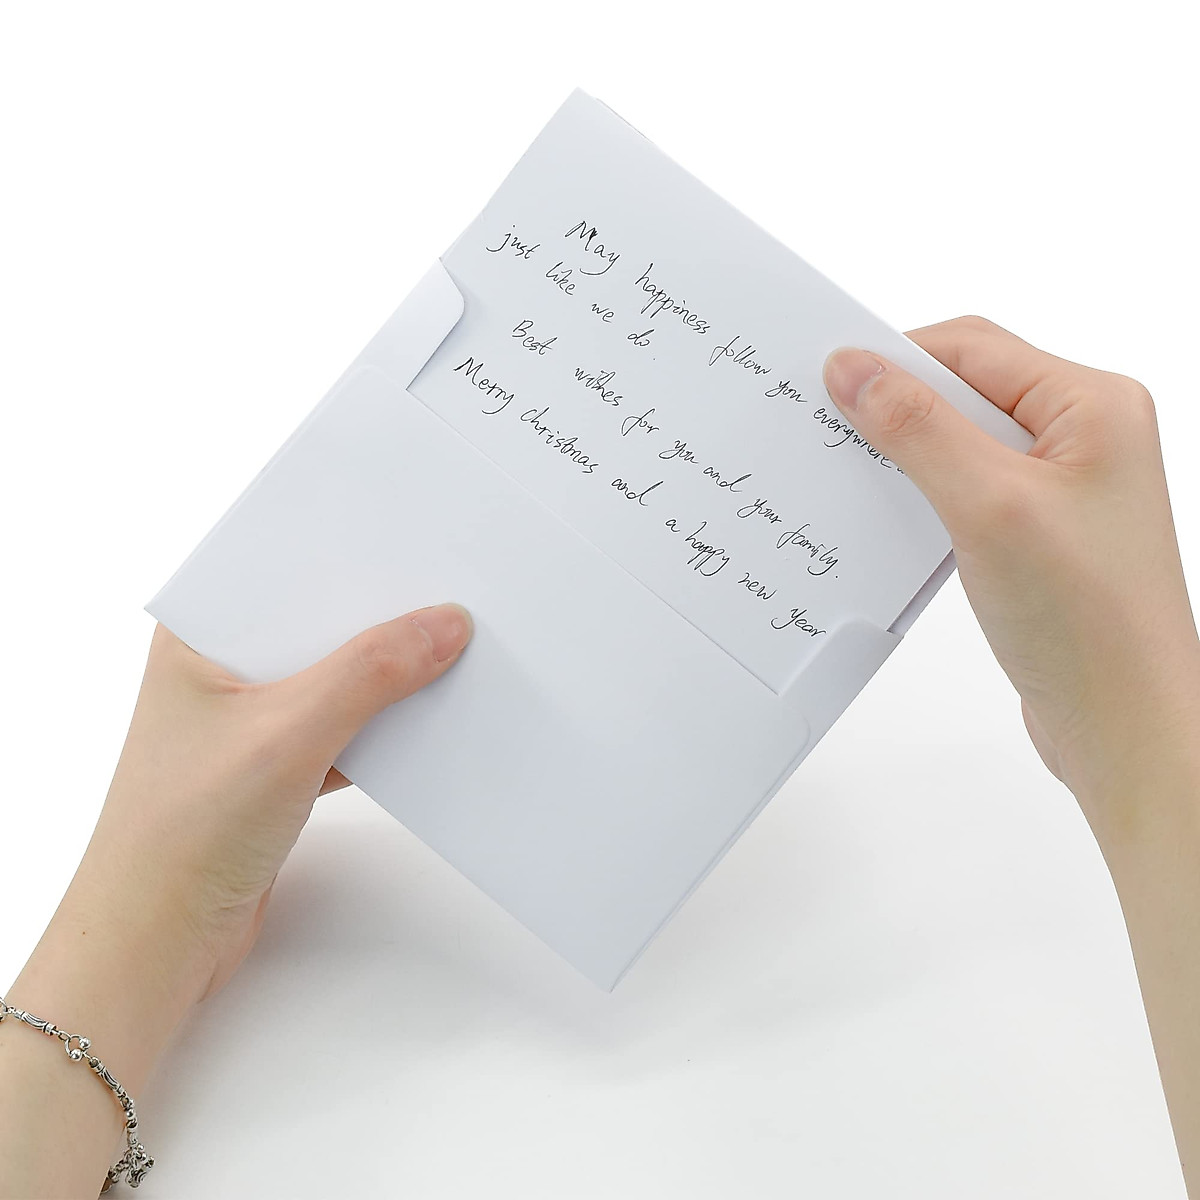 May happiness follow you everywhere
just like we do.
Best wishes for you and your family.
Merry christmas and a happy new year